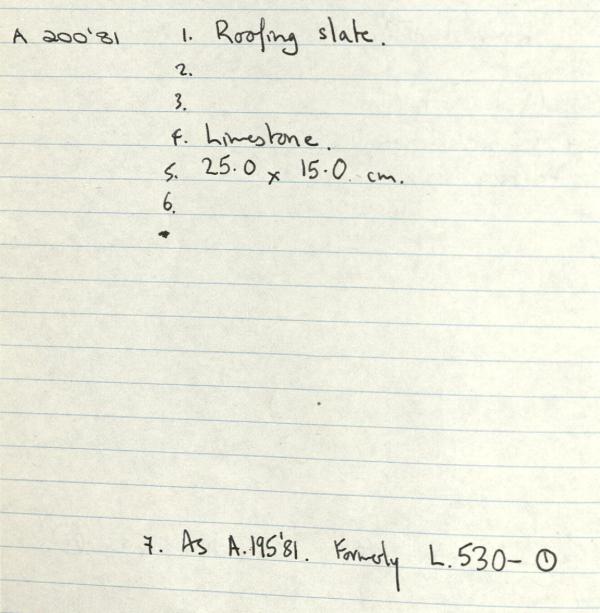 A 200'81 1. Roofing slate.
2.
3.
4. Limestone.
5. 25.0 x 15.0 cm.
6.
7. As A.195'81. Formerly L.530- ①